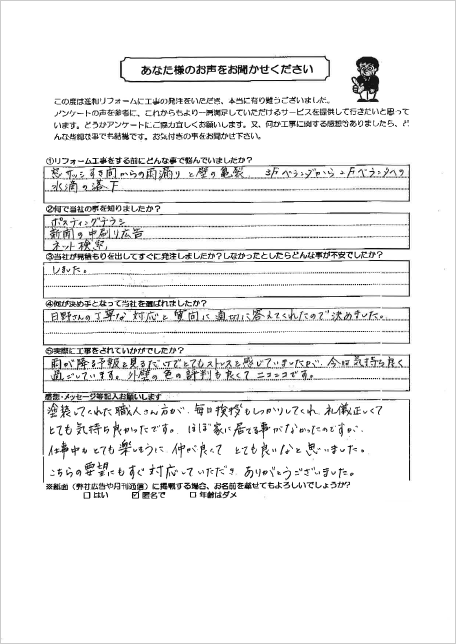 あなた様のお声をお聞かせください
この度は遥和リフォームに工事の発注をいただき、本当に有り難うございました。
アンケートの声を参考に、これからもより一層満足していただけるサービスを提供して行きたいと思って
います。どうかアンケートにご協力宜しくお願いします。又、何か工事に関する感想等ありましたら、ど
んな些細な事でも結構です。お気付きの事をお聞かせ下さい。
①リフォーム工事をする前にどんな事で悩んでいましたか?
窓サッシすき間からの雨漏りと壁の亀裂 3Fベランダから2Fベランダへの
水滴の落下
②何で当社の事を知りましたか?
ポスティングチラシ
新聞の中刷り広告
ネット検索
③当社が見積もりを出してすぐに発注しましたか?しなかったとしたらどんな事が不安でしたか?
しました。
④何が決め手となって当社を選ばれましたか?
日野さんの丁寧な対応と質問に適切に答えてくれたので決めました。
⑤実際に工事をされていかがでしたか?
雨が降る予報を見るだけでとてもストレスを感じていましたが、今は気持ち良く
過ごしています。外壁の色の評判も良くてニコニコです。
感想・メッセージ等記入お願いします
塗装してくれた職人さん方が、毎日挨拶もしっかりしてくれ、礼儀正しくて
とても気持ち良かったです。ほぼ家に居る事がなかったのですが、
仕事中もとても楽しそうに仲が良くてとても良いなと思いました。
こちらの要望にもすぐ対応していただき ありがとうございました。
※紙面(弊社広告や月刊通信)に掲載する場合、お名前を載せてもよろしいでしょうか?
□はい ☑匿名で □年齢はダメ